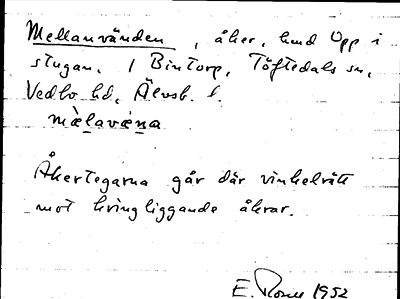 Mellanvänden, åker, hmd Upp i
stugan. / Bintorp, Töftedals sn,
Vedbo hd, Älvsb. l.
mælavæna
Åkertegarna går där vinkelrätt
mot kringliggande åkrar.
E. 1952